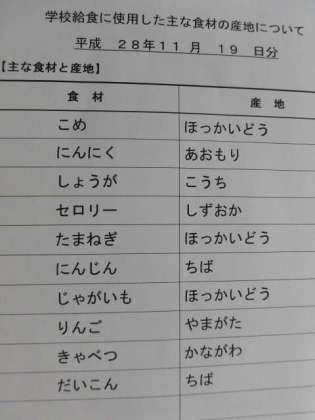 学校給食に使用した主な食材の産地について
平成 28年11月 19 日分
【主な食材と産地】
食材 産地
こめ ほっかいどう
にんにく あおもり
しょうが こうち
セロリー しずおか
たまねぎ ほっかいどう
にんじん ちば
じゃがいも ほっかいどう
りんご やまがた
きゃべつ かながわ
だいこん ちば